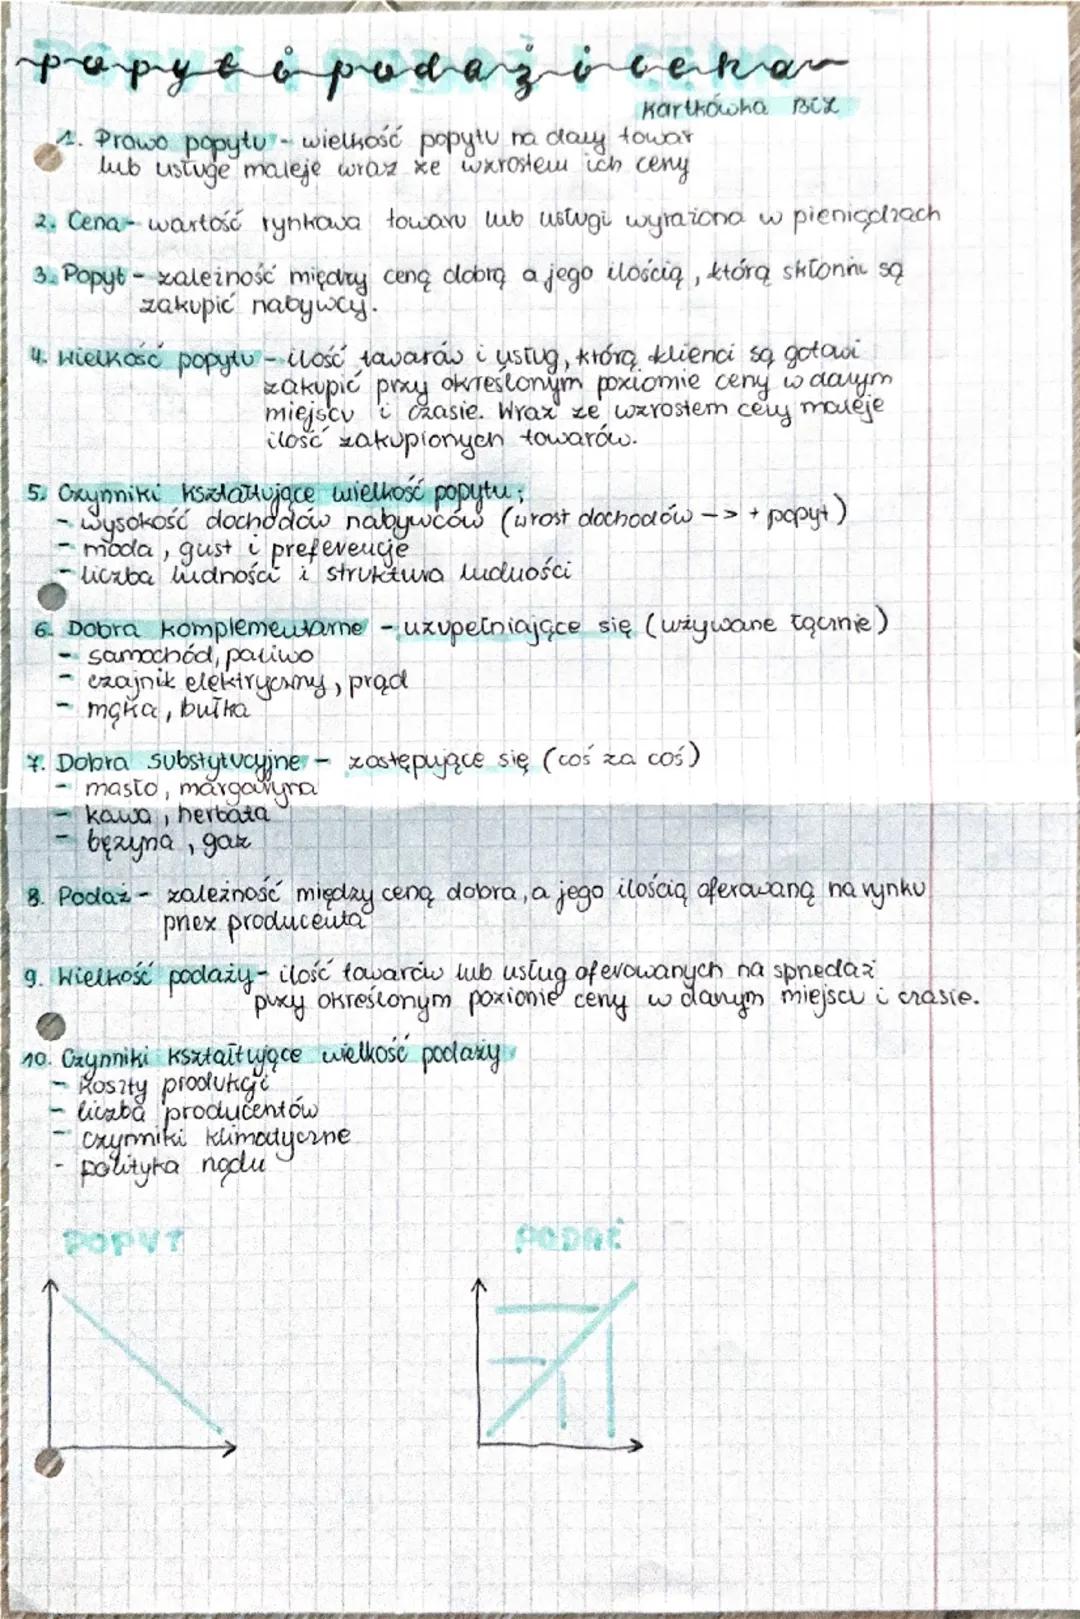 popyt i podaż i cena
kartkówka BIZ
1. Prawo popytu - wielkość popytu na dany towar
lub usługę maleje wraz ze wzrostem ich ceny
2. Cena - wartość rynkowa towaru lub usługi wyrażona w pieniądzach
3. Popyt - zależność między ceną dobrą a jego ilością, którą skłonni są
zakupić nabywcy.
4. Wielkość popytu - ilość towarów i usług, którą klienci są gotowi
zakupić przy określonym poziomie ceny w danym
miejscu i czasie. Wraz ze wzrostem ceny maleje
ilość zakupionych towarów.
5. Czynniki kształtujące wielkość popytu:
- wysokość dochodów nabywców (wrost dochodów --> + popyt)
- moda, gust i preferencje
- liczba ludności i struktura ludności
6. Dobra komplementarne - uzupełniające się (używane łącznie)
- samochód, paliwo
- czajnik elektryczny, prąd
- mąka, bułka
7. Dobra substytucyjne - zastępujące się (coś za coś)
- masło, margaryna
- kawa, herbata
- bęzyna, gaz
8. Podaż - zależność między ceną dobra, a jego ilością oferowaną na rynku
przez producenta
9. Wielkość podaży - ilość towarów lub usług oferowanych na sprzedaż
przy określonym poziomie ceny w danym miejscu i czasie.
10. Czynniki kształtujące wielkość podaży
- koszty produkcji
- liczba producentów
- czynniki klimatyczne
- polityka rządu
POPYT
PODAŻ